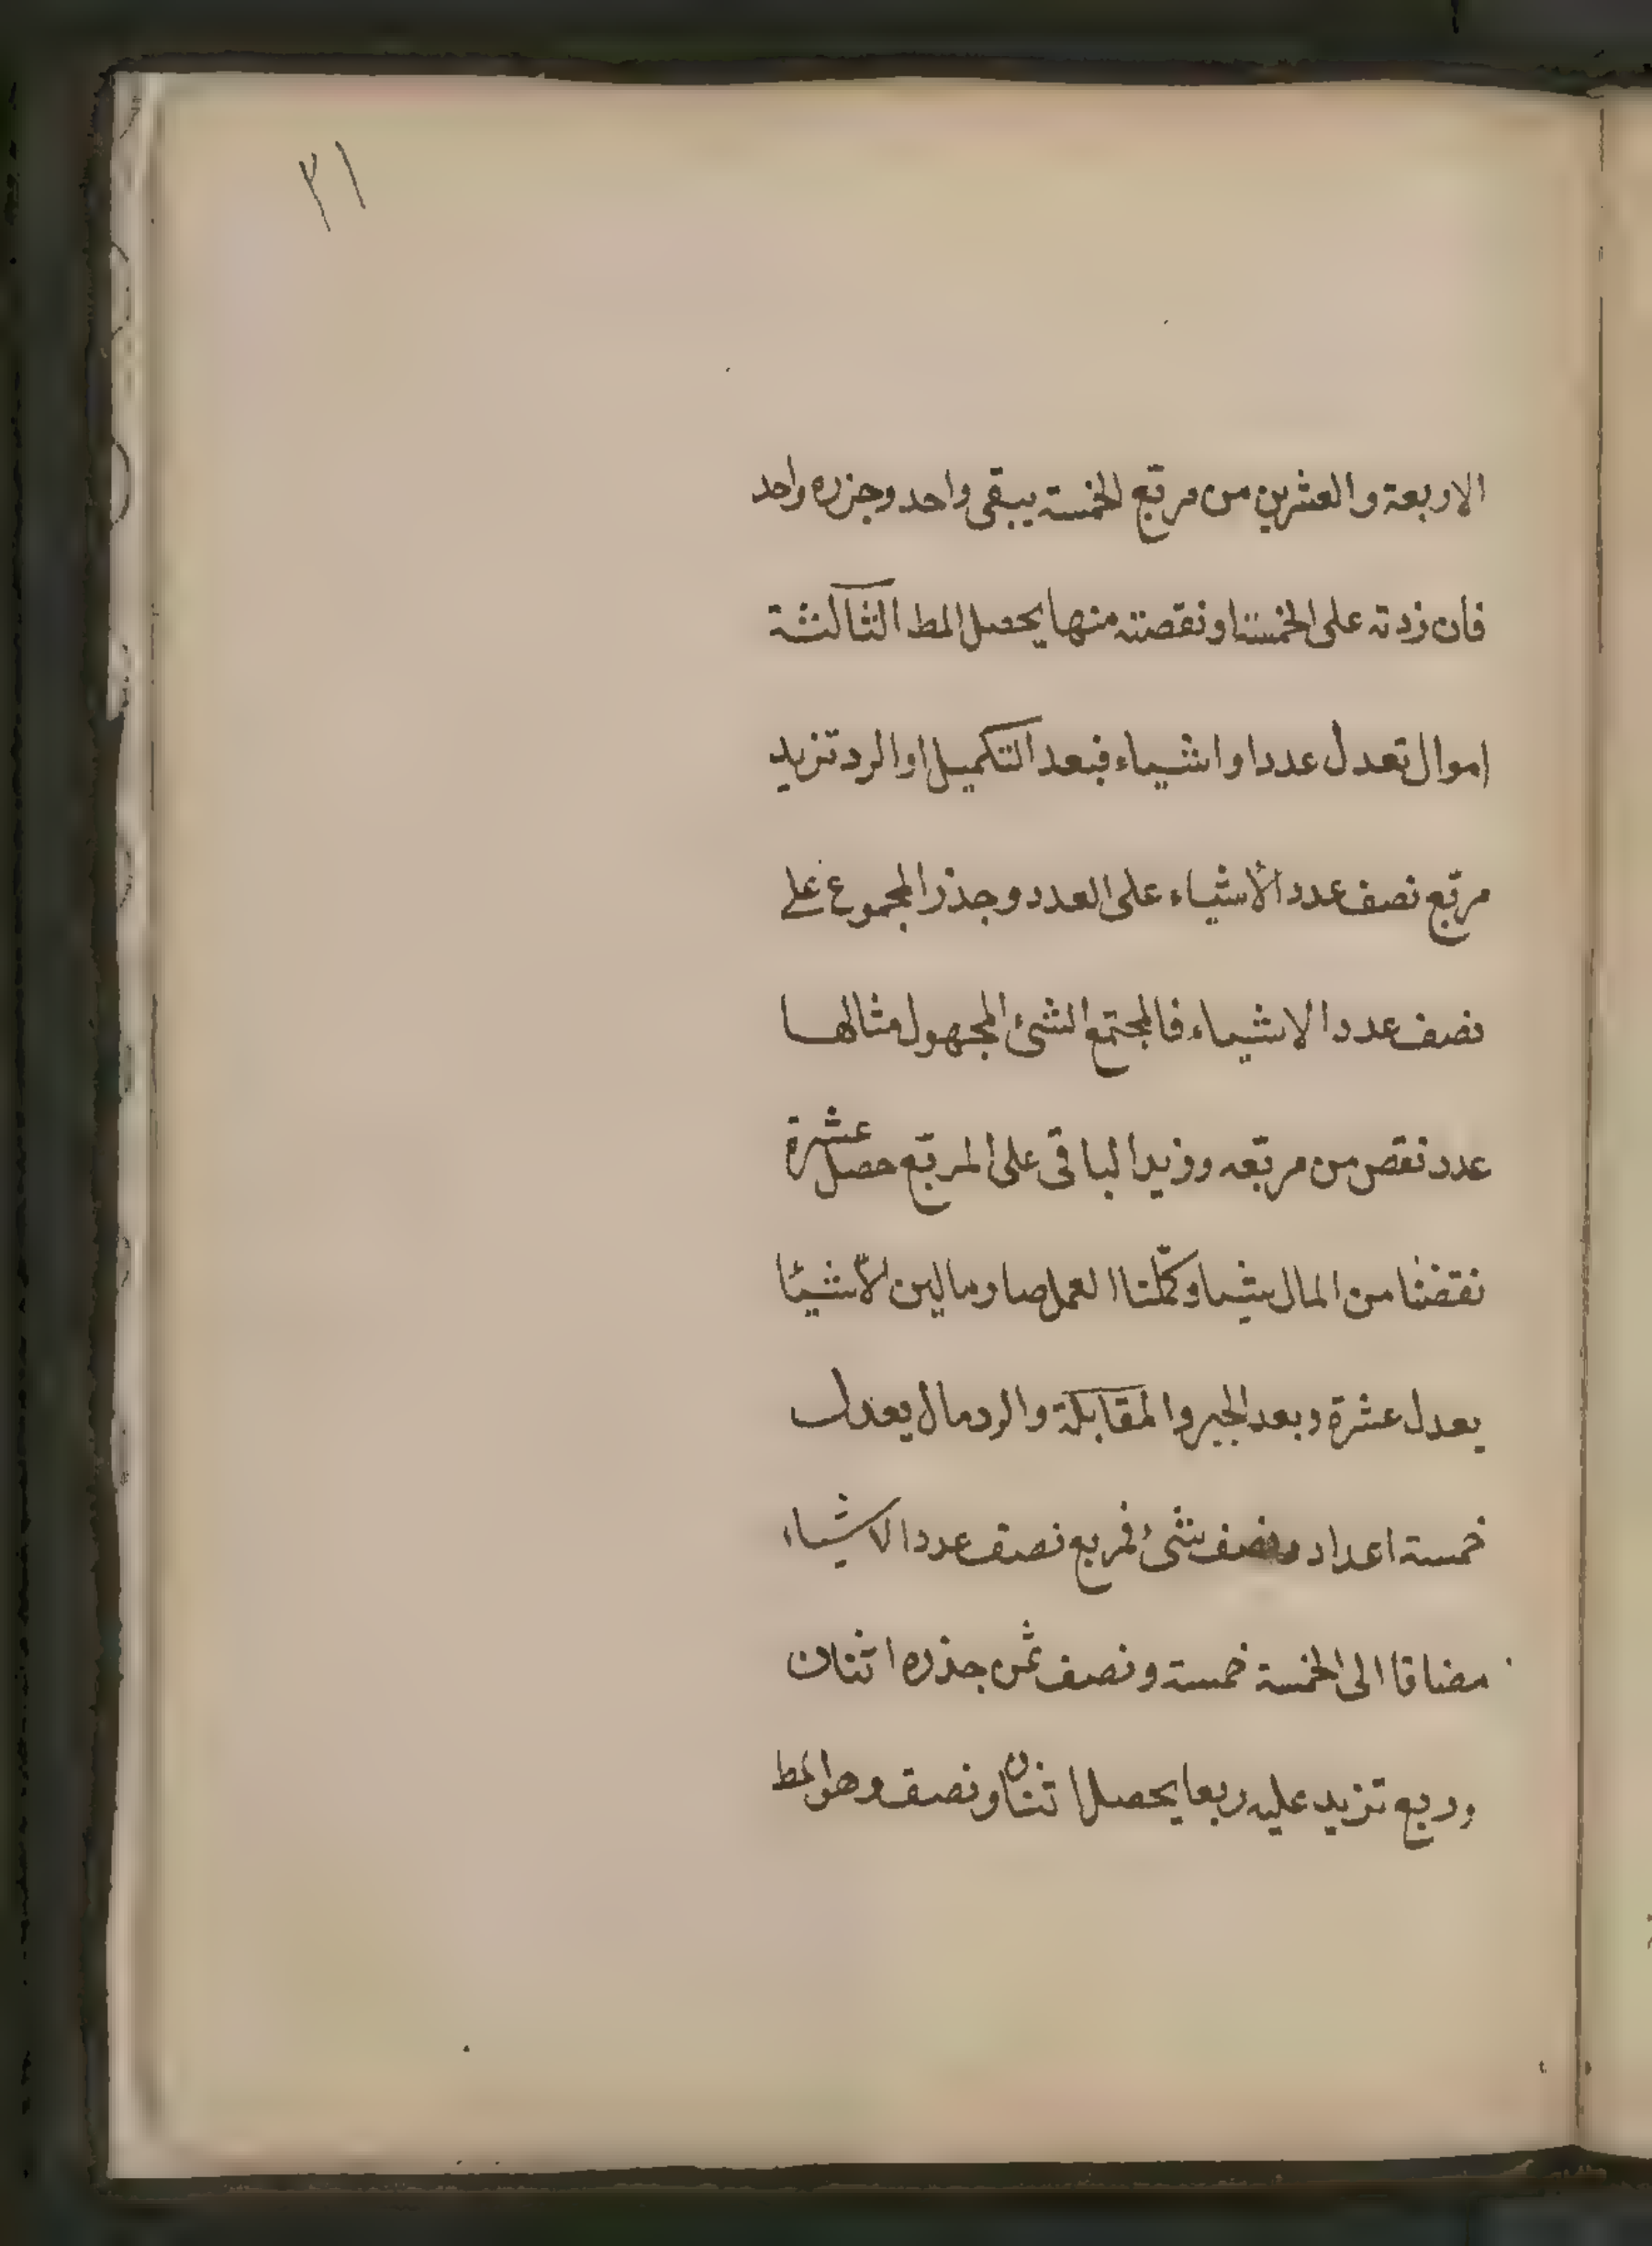 ٣١
الاربعة والعشرين من مربّع الخمسة يبقى واحد وجزره واحد
فأن زدته على الخمسة او نقصته منها يحصل المط الثالثة
اموال تعدل عددا واشياء فبعد التكميل او الرد تزيد
مربّع نصف عدد الأشياء على العدد وجذر المجموع على
نصف عدد الاشياء فالمجتمع الشئ المجهول مثالها
عدد نقص من مربّعه وزيد الباقى على المربّع حصل عشرة
نقصنا من المال شيئا وكمّلنا العمل صار مالين الّا شيئا
يعدل عشرة وبعد الجبر والمقابلة والرد مال يعدل
خمسة اعداد ونصف شئ فمربع نصف عدد الاشياء
مضافا الى الخمسة خمسة ونصف ثمن جذره اثنان
وربع تزيد عليه ربعا يحصل اثنان ونصف وهو المط